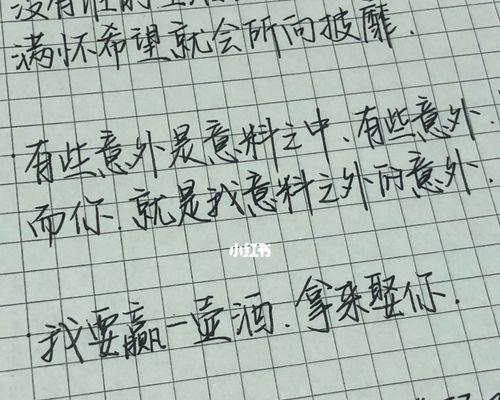 没有
满怀希望就会所向披靡.
有些意外是意料之中、有些意外.
而你.就是我意料之外的意外.
小红书
我要赢一壶酒.拿来娶你.